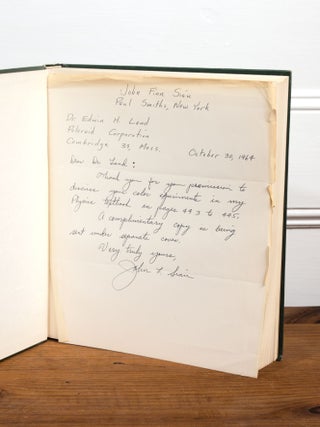 John Finn
Paul Smiths, New York
Dr Edwin H. Land
Polaroid Corporation
Cambridge 39, Mass.
October 30, 1964
Dear Dr. Land:
Thank you for your permission to
discuss your color experiments in my
Physics textbook on pages 443 to 445.
A complimentary copy is being
sent under separate cover.
Very truly yours,
John F.